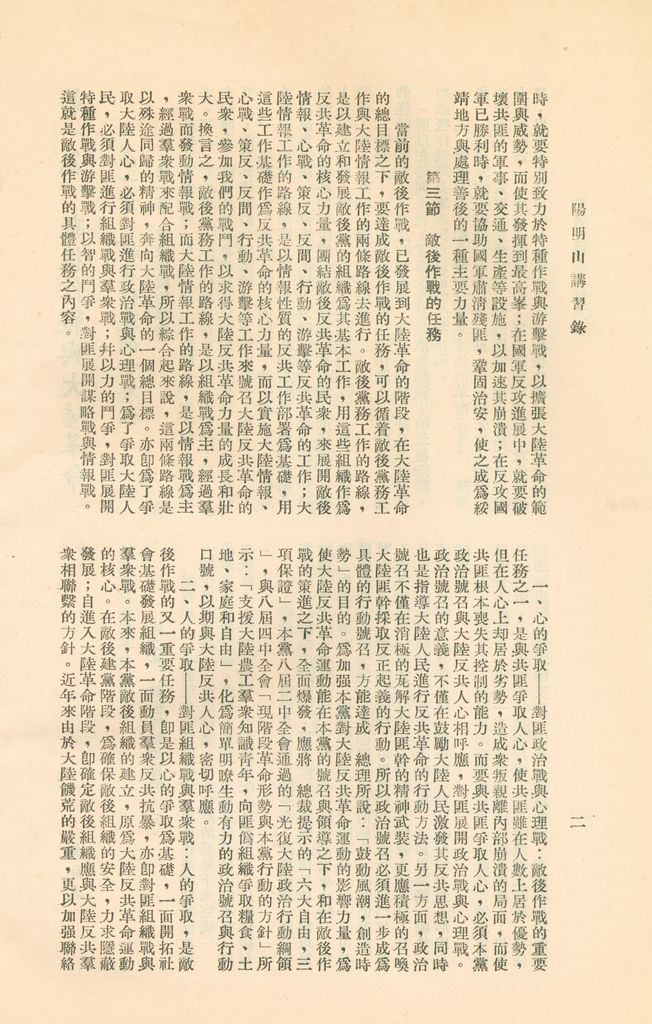 陽明山講習錄
二
時，就要特別致力於特種作戰與游擊戰，以擴張大陸革命的範
圍與威勢，而使其發揮到最高峯；在國軍反攻進展中，就要破
壞共匪的軍事、交通、生產等設施，以加速其崩潰；在反攻國
軍已勝利時，就要協助國軍肅淸殘匪，鞏固治安，使之成爲綏
靖地方與處理善後的一種主要力量。
第三節　敵後作戰的任務
當前的敵後作戰，已發展到大陸革命的階段，在大陸革命
的總目標之下，要達成敵後作戰的任務，可以循着敵後黨務工
作與大陸情報工作的兩條路線去進行。敵後黨務工作的路線，
是以建立和發展敵後黨的組織爲其基本工作，用這些組織作爲
反共革命的核心力量，團結敵後反共革命的民衆，來展開敵後
情報、心戰、策反、反間、行動、游擊等反共革命的工作；大
陸情報工作的路線，是以情報性質的反共工作部署爲基礎，用
這些工作基礎作爲反共革命的核心力量，而以實施大陸情報、
心戰、策反、反間、行動、游擊等工作來號召大陸反共革命的
民衆，參加我們的戰鬥，以求得大陸反共革命力量的成長和壯
大。換言之，敵後黨務工作的路線，是以組織戰爲主，經過羣
衆戰而發動情報戰；而大陸情報工作的路線，是以情報戰爲主
，經過羣衆戰來配合組織戰，所以綜合起來說，這兩條路線是
以殊途同歸的精神，奔向大陸革命的一個總目標。亦卽爲了爭
取大陸人心，必須對匪進行政治戰與心理戰；爲了爭取大陸人
民，必須對匪進行組織戰與羣衆戰；幷以力的鬥爭，對匪展開
特種作戰與游擊戰；以智的鬥爭，對匪展開謀略戰與情報戰。
這就是敵後作戰的具體任務之內容。
一、心的爭取——對匪政治戰與心理戰：敵後作戰的重要
任務之一，是與共匪爭取人心，使共匪雖在人數上居於優勢，
但在人心上却居於劣勢，造成衆叛親離內部崩潰的局面，而使
共匪根本喪失其控制的能力。而要與共匪爭取人心，必須本黨
政治號召與大陸反共人心相呼應，對匪展開政治戰與心理戰。
政治號召的意義，不僅在鼓勵大陸人民激發其反共思想，同時
也是指導大陸人民進行反共革命的行動方法。另一方面，政治
號召不僅在消極的瓦解大陸匪幹的精神武裝，更應積極的召喚
大陸匪幹採取反正起義的行動。所以政治號召必須進一步成爲
具體的行動號召，方能達成　總理所說：「鼓動風潮，創造時
勢」的目的。爲加强本黨對大陸反共革命運動的影響力量，爲
使大陸反共革命運動能在本黨的號召與領導之下，和在敵後作
戰的策進之下，全面爆發，應將　總裁提示的「六大自由，三
項保證」，本黨八屆二中全會通過的「光復大陸政治行動綱領
」，與八屆四中全會「現階段革命形勢與本黨行動的方針」所
示：「支援大陸農工羣衆知識靑年，向匪僞組織爭取糧食、土
地、家庭和自由」，化爲簡單明瞭生動有力的政治號召與行動
口號，以期與大陸反共人心，密切呼應。
二、人的爭取——對匪組織戰與羣衆戰：人的爭取，是敵
後作戰的又一重要任務，卽是以心的爭取爲基礎，一面開拓社
會基礎發展組織，一面動員羣衆反共抗暴，亦卽對匪組織戰與
羣衆戰。本來，本黨敵後組織的建立，原爲大陸反共革命運動
的核心。在敵後建黨階段，爲確保敵後組織的安全，力求隱蔽
發展；自進入大陸革命階段，卽確定敵後組織應與大陸反共羣
衆相聯繫的方針。近年來由於大陸饑荒的嚴重，更以加强聯絡